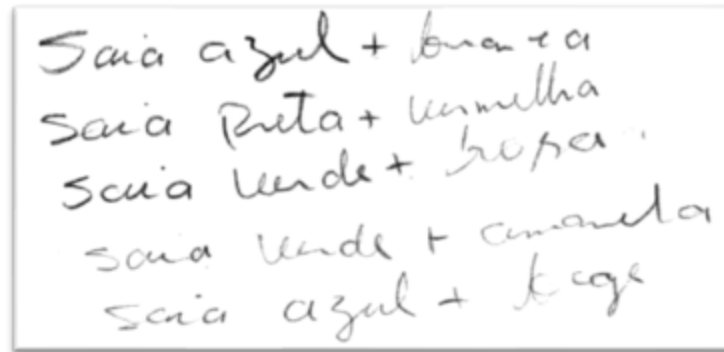 Saia azul + branca
Saia Preta + vermelha
saia verde + rosa.
saia verde + amarela
saia azul +